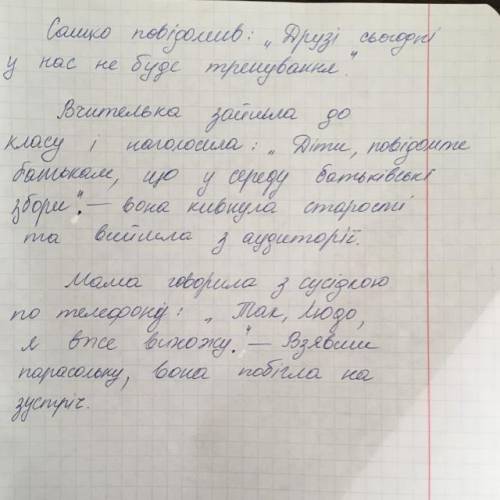 Сашко повідомив: „Друзі сьогодні
у нас не буде тренування".
Вчителька зайшла до
класу і наголосила: „Діти, повідомте
батькам, що у середу батьківські
збори". — вона кивнула старості
та вийшла з аудиторії.
Мама говорила з сусідкою
по телефону: „Так, Людо,
я вже вихожу." — Взявши
парасольку, вона побігла на
зустріч.